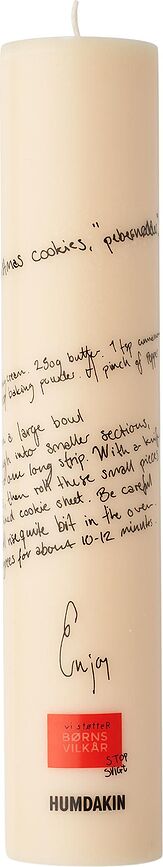 cookies, "pebernødder
cream. 250g butter. 1 tsp
baking powder. A pinch of
a large bowl
into smaller sections,
one long strip. With a
then roll these small pieces
cookie sheet. Be careful
quite bit in the oven
for about 10-12 minutes
Enjoy
vi støtter
BØRNS
VILKÅR
STOP
SVIGT
HUMDAKIN